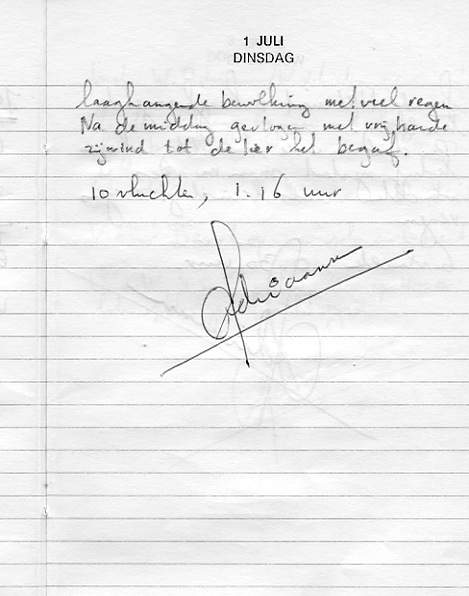 1 JULI
DINSDAG
laaghangende bewolking met veel regen
Na de middag gevlogen met vrij harde
zijwind tot de lier het begaf.
10 vluchten, 1.16 uur